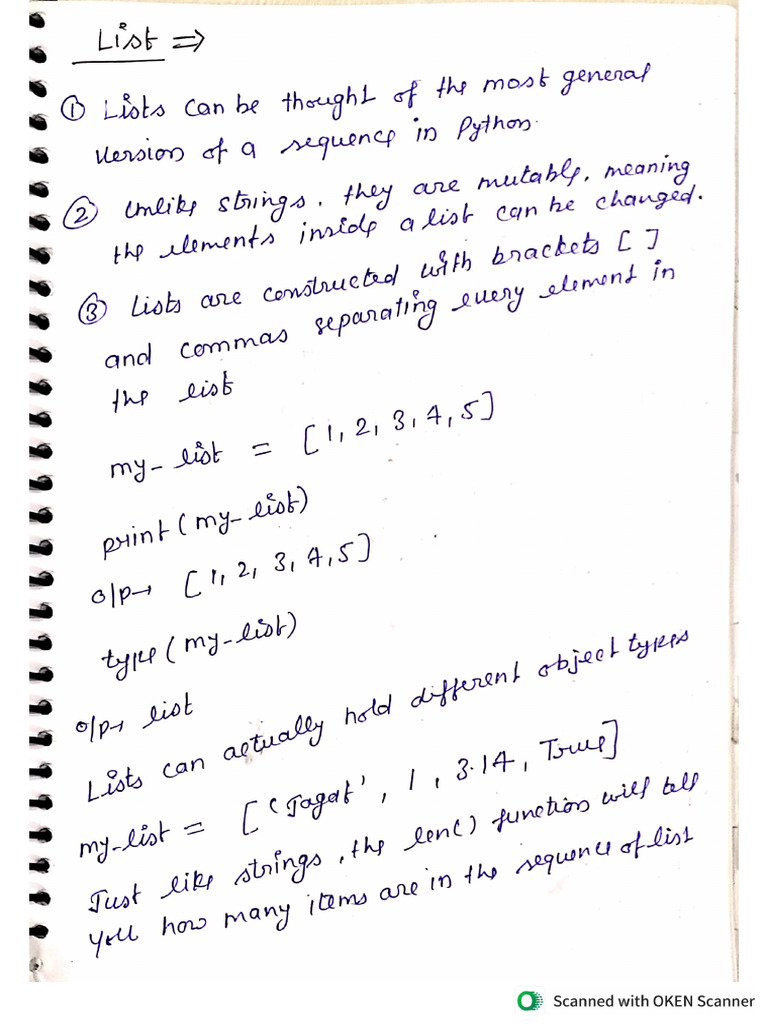 List ⇒
① Lists can be thought of the most general
version of a sequence in Python.
② Unlike strings, they are mutable, meaning
the elements inside a list can be changed.
③ Lists are constructed with brackets [ ]
and commas separating every element in
the list
my_list = [1, 2, 3, 4, 5]
print(my_list)
o/p→ [1, 2, 3, 4, 5]
type(my_list)
o/p→ list
Lists can actually hold different object types
my_list = ['Jagat', 1, 3.14, True]
Just like strings, the len() function will tell
you how many items are in the sequence of list
Scanned with OKEN Scanner